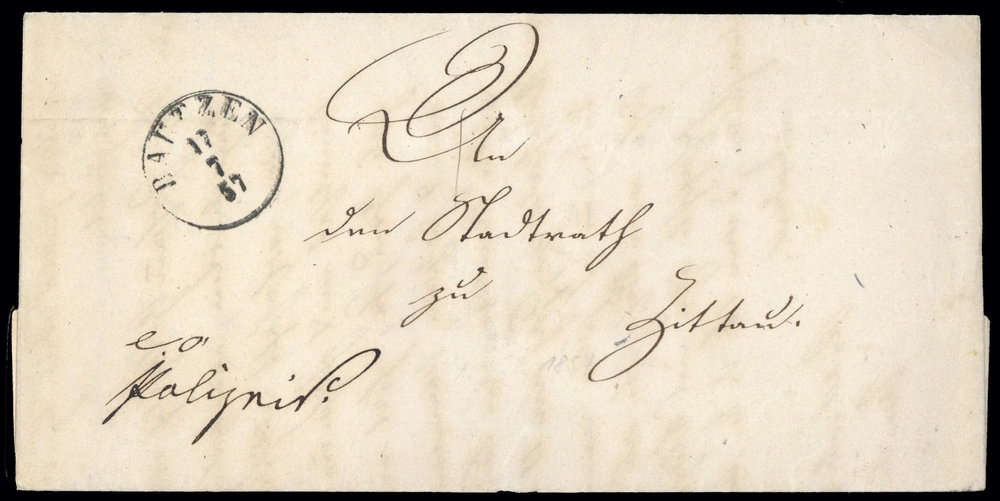 BAUTZEN
17
7
57
An
den Stadtrath
zu
Zittau.
Polizeis.